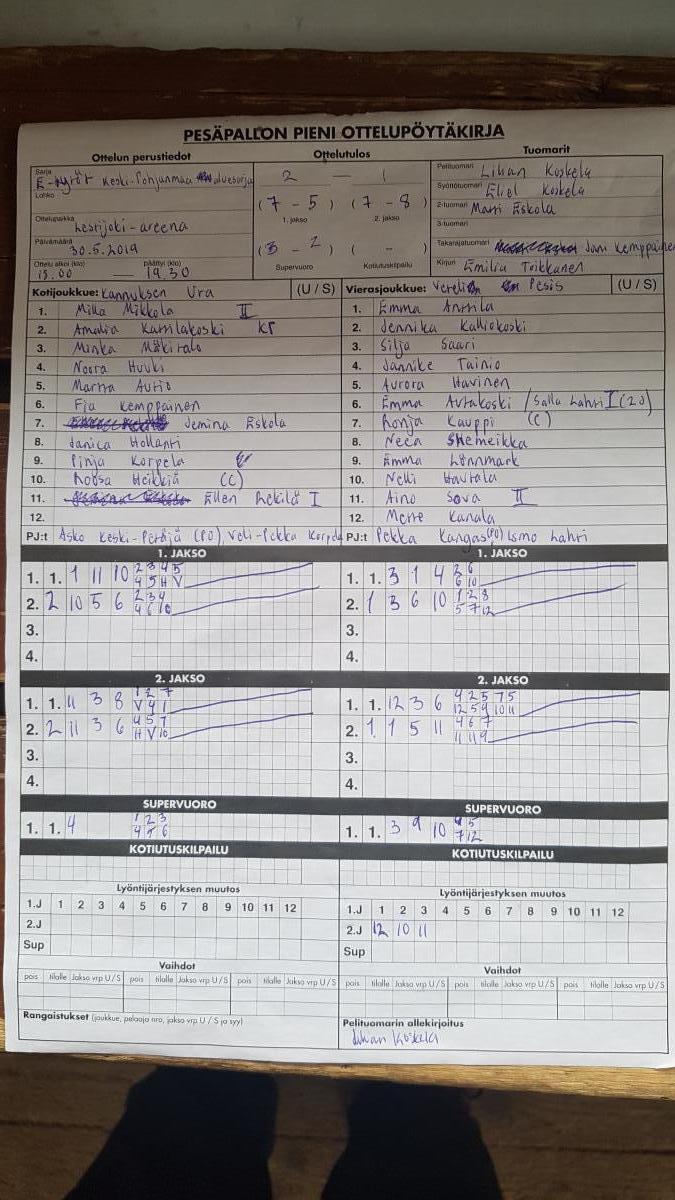 PESÄPALLON PIENI OTTELUPÖYTÄKIRJA
Ottelun perustiedot Ottelutulos Tuomarit
Sarja E-tytöt Keski-Pohjanmaa aluesarja
Lohko
Ottelupaikka Lestijoki-areena
Päivämäärä 30.5.2019
Ottelu alkoi (klo) päättyi (klo)
18.00 — 19.30
2 — 1
(7 - 5) (7 - 8)
1. jakso 2. jakso
(3 - 2) ( - )
Supervuoro Kotiutuskilpailu
Pelituomari Lihan Koskela
Syöttötuomari Eliel Koskela
2-tuomari Matti Eskola
3-tuomari
Takarajatuomari Jani Kemppainen
Kirjuri Emilia Teikkanen
Kotijoukkue: Kannuksen Ura (U / S)
1. Milla Mikkola II
2. Amalia Karhilakoski
3. Minka Mäkitalo
4. Noora Huuki
5. Martta Autio
6. Fia Kemppainen
7. Jemina Eskola
8. Janica Hollanti
9. Pinja Korpela
10. Roosa Heikkilä (C)
11. Ellen Pekilä I
12.
PJ:t Asko Keski-Petäjä (PO), Veli-Pekka Korpela
Vierasjoukkue: Vetelin Pesis (U / S)
1. Emma Anttila
2. Jennika Kalliokoski
3. Silja Saari
4. Jannike Tainio
5. Aurora Havinen
6. Emma Autakoski / Salla Lahti I (20)
7. Ronja Kauppi (C)
8. Neea Shemeikka
9. Emma Lönnmark
10. Nelli Hautala
11. Aino Sova II
12. Merre Kanala
PJ:t Pekka Kangas (PO) Ismo Lahti
1. JAKSO
1. 1. 1 11 10 2 3 4 5
4 5 H V
2. 2 10 5 6 2 3 4
4 6 10
3.
4.
1. JAKSO
1. 1. 3 1 4 2 6
6 10
2. 1 3 6 10 1 2 8
5 7 12
3.
4.
2. JAKSO
1. 1. 11 3 8 1 2 7
V 4 1
2. 2 11 3 6 4 5 7
H V 10
3.
4.
2. JAKSO
1. 1. 12 3 6 4 2 5 7 5
12 5 9 10 11
2. 1 1 5 11 4 6 7
11 11 9
3.
4.
SUPERVUORO
1. 1. 4 1 2 3
4 5 6
SUPERVUORO
1. 1. 3 9 10 4 5
7 12
KOTIUTUSKILPAILU
KOTIUTUSKILPAILU
Lyöntijärjestyksen muutos
1.J 1 2 3 4 5 6 7 8 9 10 11 12
2.J
Sup
Lyöntijärjestyksen muutos
1.J 1 2 3 4 5 6 7 8 9 10 11 12
2.J 12 10 11
Sup
Vaihdot
pois tilalle Jakso vrp U/S pois tilalle Jakso vrp U/S pois tilalle Jakso vrp U/S
Vaihdot
pois tilalle Jakso vrp U/S pois tilalle Jakso vrp U/S pois tilalle Jakso vrp U/S
Rangaistukset (joukkue, pelaaja nro, jakso vrp U / S ja syy)
Pelituomarin allekirjoitus
Lihan Koskela